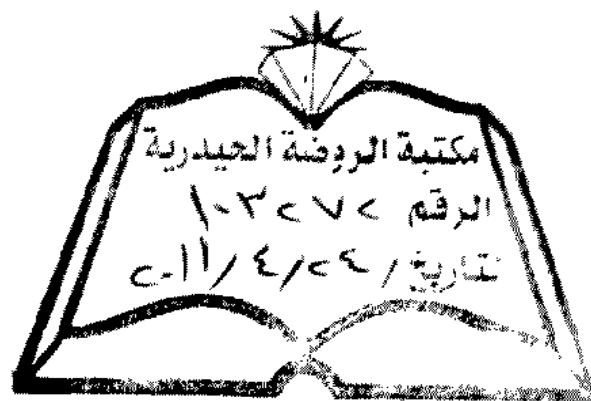 مكتبة الروضة الحيدرية
الرقم ١٠٣٢٧٢
تاريخ / ٢٤ / ٤ / ٢٠١١